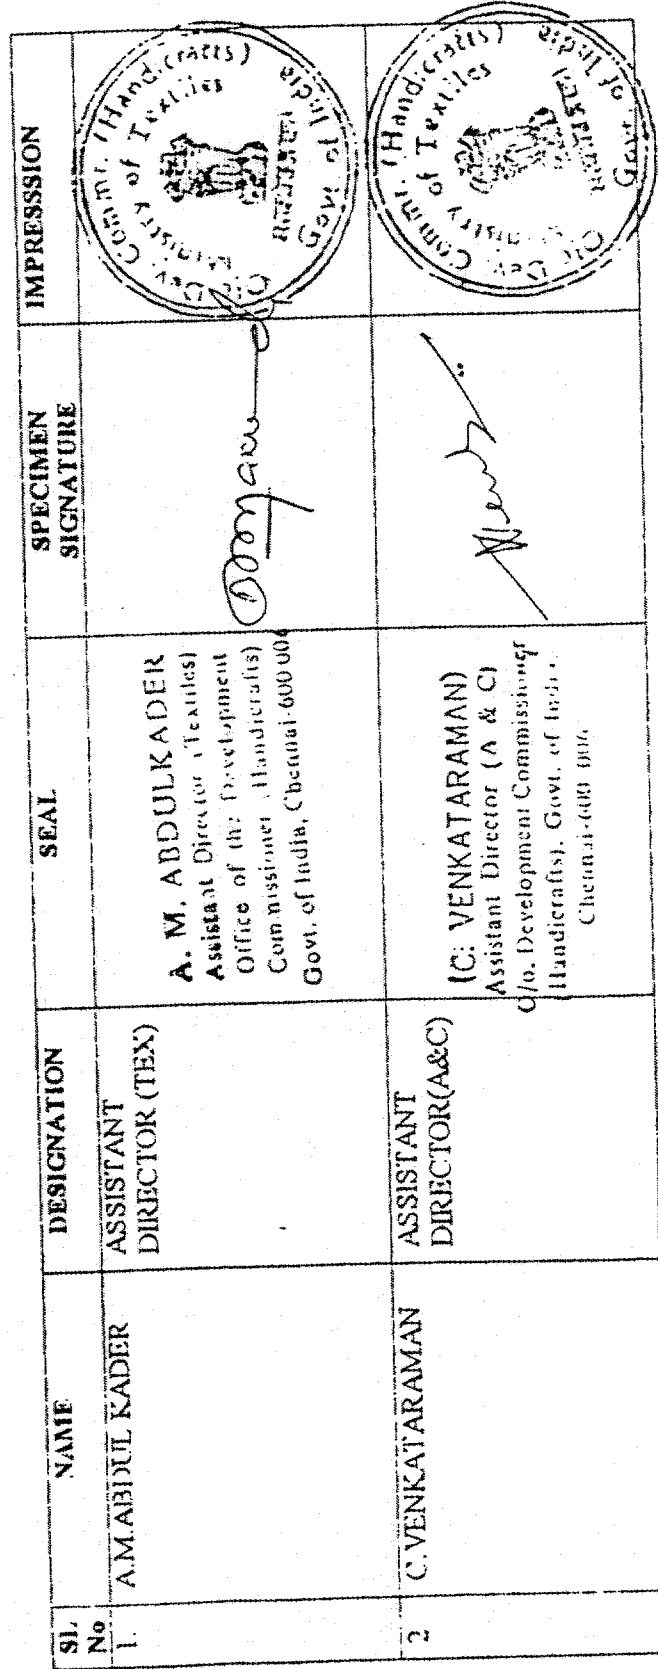 SL. No
NAME
DESIGNATION
SEAL
SPECIMEN SIGNATURE
IMPRESSSION
1.
A.M.ABDUL KADER
ASSISTANT
DIRECTOR (TEX)
A. M. ABDULKADER
Assistant Director (Textiles)
Office of the Development
Commissioner (Handicrafts)
Govt. of India, Chennai-600 006
O/o Dev. Commr. (Handicrafts)
Ministry of Textiles
Govt of India
2
C.VENKATARAMAN
ASSISTANT
DIRECTOR(A&C)
(C: VENKATARAMAN)
Assistant Director (A & C)
O/o. Development Commissioner
(Handicrafts), Govt. of India,
Chennai-600 006
O/o Dev. Commr. (Handicrafts)
Ministry of Textiles
Govt of India